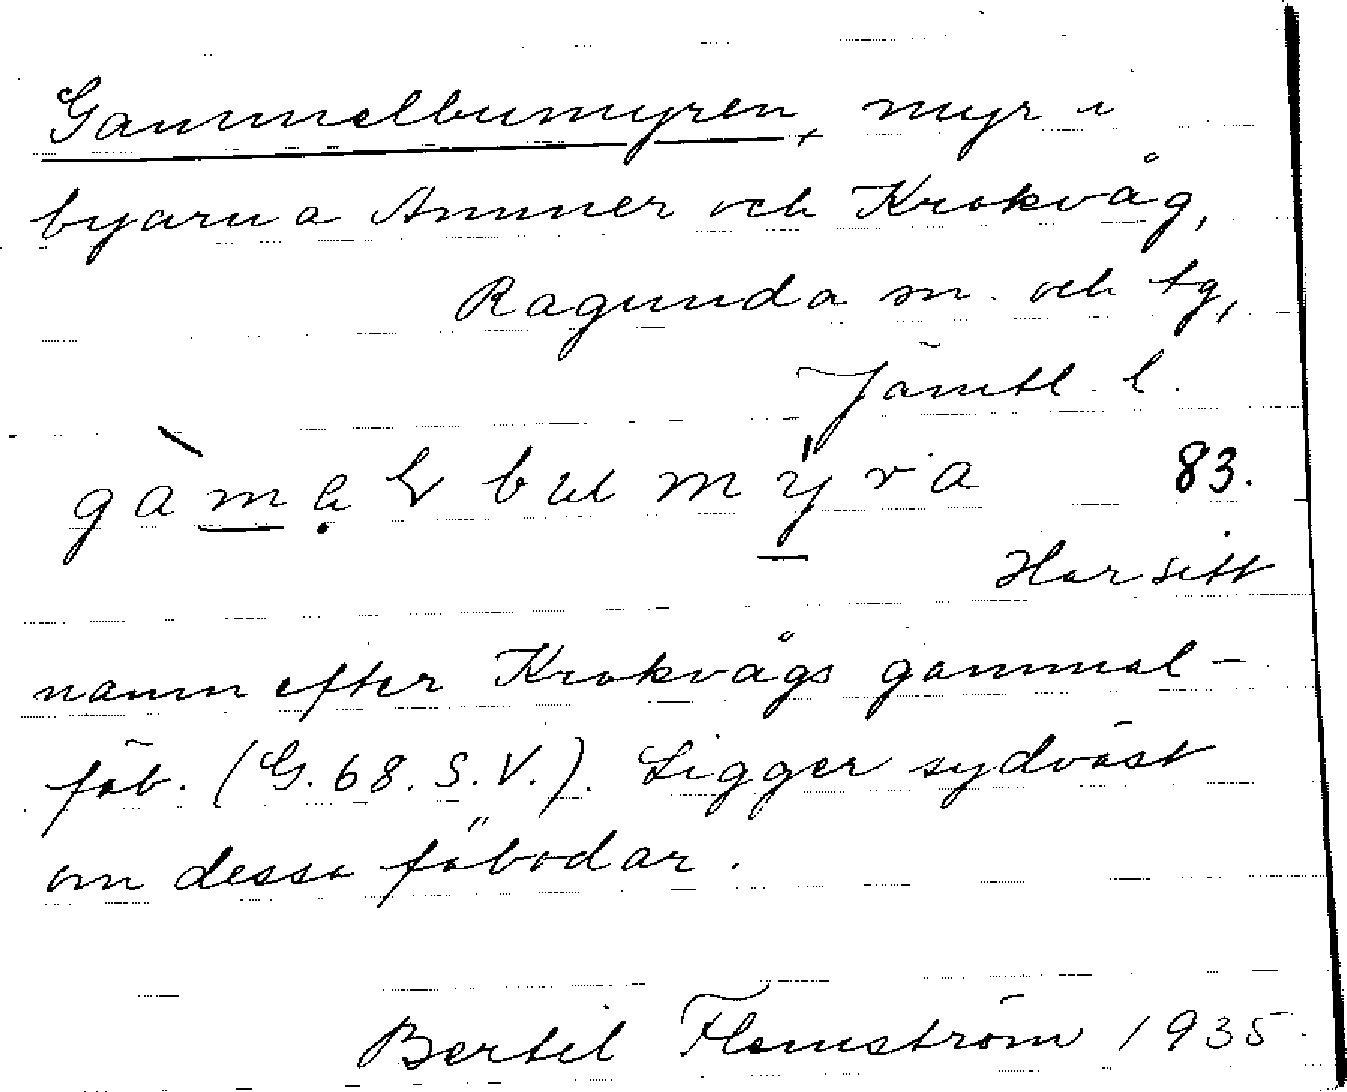 Gammelbumyren, myr i
byarna Ammer och Krokvåg,
Ragunda sn. och tg,
Jämtl. l.
83.
Har sitt
namn efter Krokvågs gammal-
fäb. (G. 68. S.V.). Ligger sydväst
om dessa fäbodar.
Bertil Flemström 1935